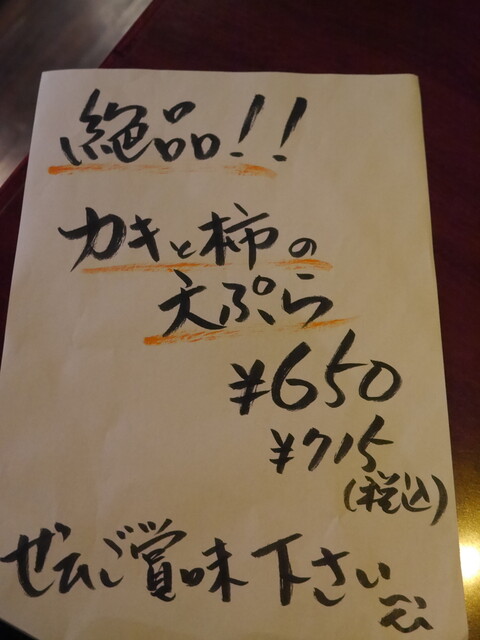 絶品!!
カキと柿の
天ぷら
¥650
¥715
(税込)
ぜひご賞味下さい